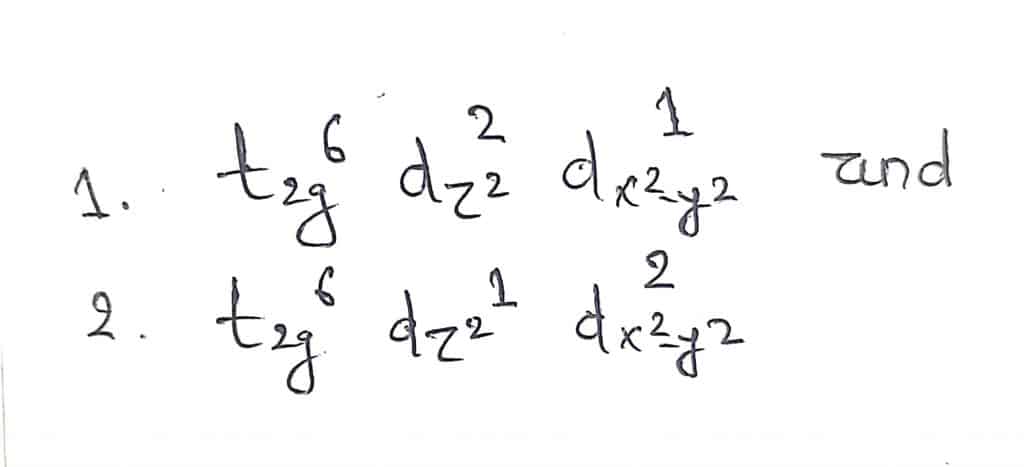 1. t₂g⁶ dz²² dx²-y²¹ and
2. t₂g⁶ dz²¹ dx²-y²²